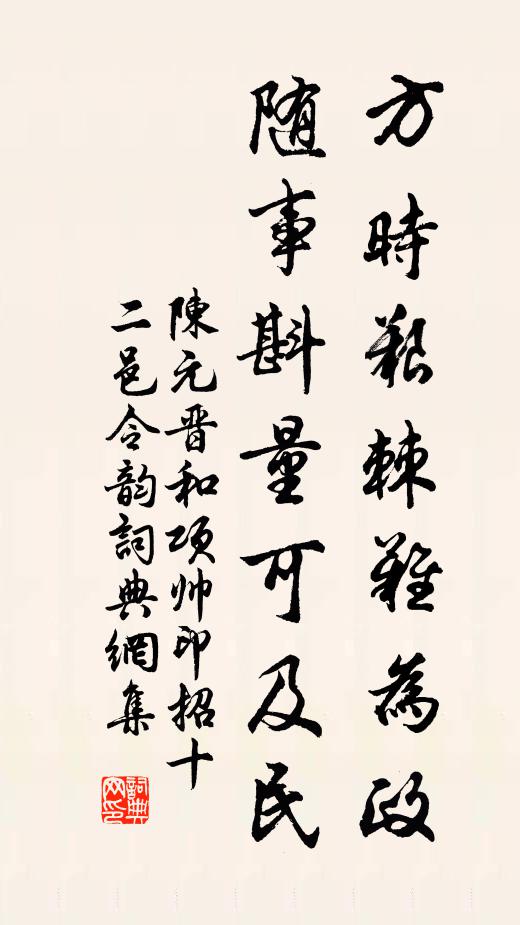 方時艱棘難為政
随事斟量可及民
陳元晋和項帅印招十
二邑令韵詞典網集
詞典網印